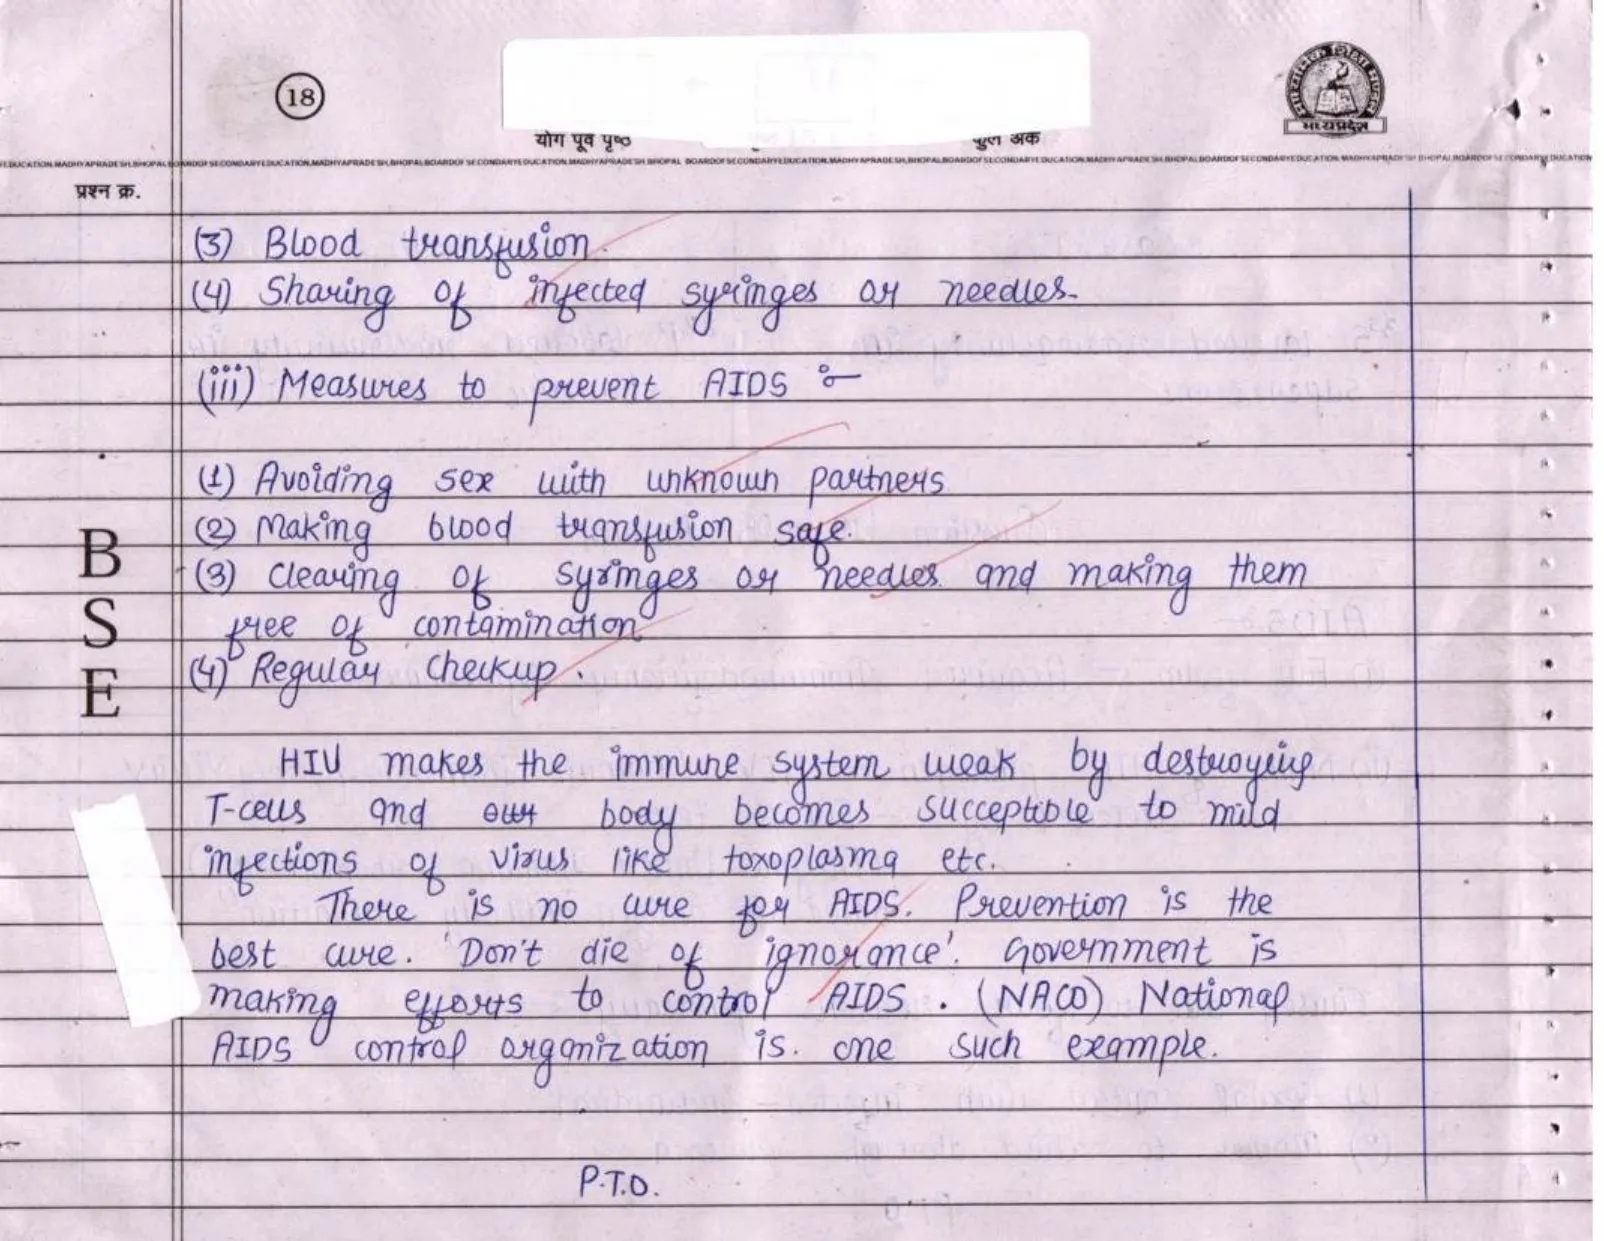 18
योग पूर्व पृष्ठ
कुल अंक
प्रश्न क्र.
(3) Blood transfusion.
(4) Sharing of infected syringes or needles.
(iii) Measures to prevent AIDS :-
(1) Avoiding sex with unknown partners
(2) Making blood transfusion safe.
(3) Clearing of syringes or needles and making them
free of contamination
(4) Regular checkup.
B
S
E
HIV makes the immune system weak by destroying
T-cells and our body becomes succeptible to mild
infections of virus like toxoplasma etc.
There is no cure for AIDS. Prevention is the
best cure. 'Don't die of ignorance'. Government is
making efforts to control AIDS. (NACO) National
AIDS control organization is. one such example.
P.T.O.
मध्यप्रदेश